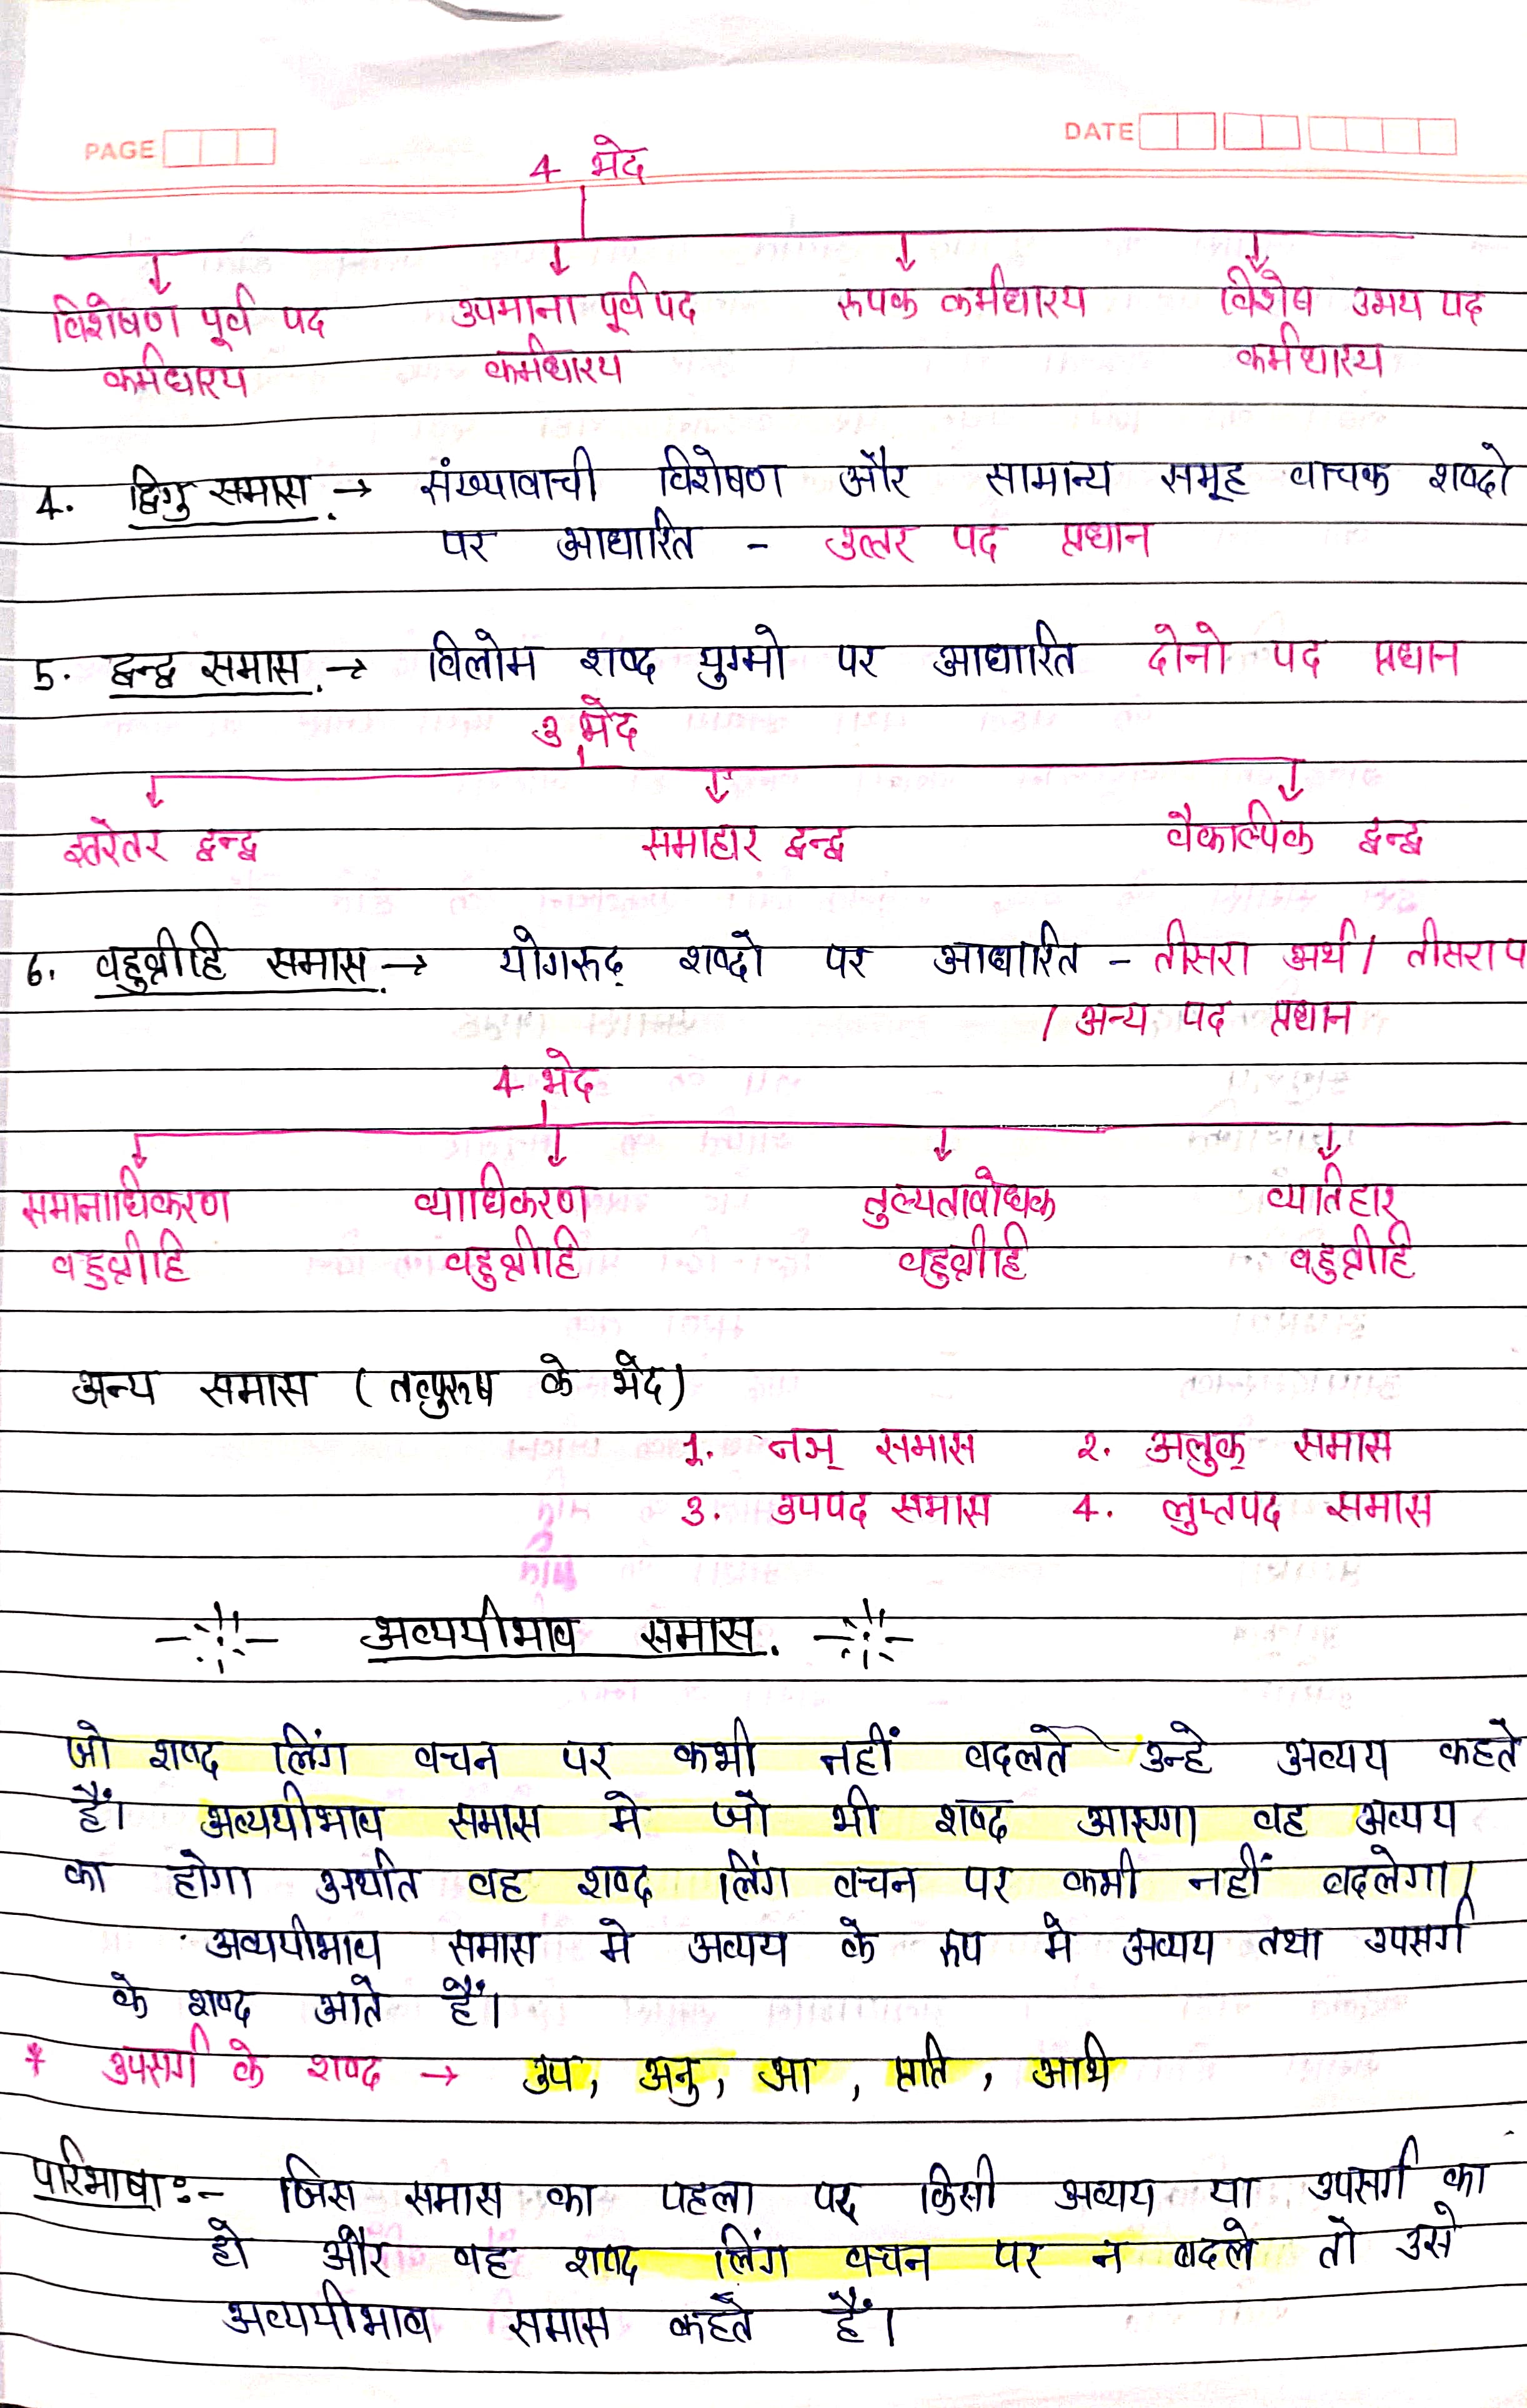 PAGE
DATE
4 भेद
विशेषण पूर्व पद उपमाना पूर्व पद रूपक कर्मधारय विशेष उभय पद
कर्मधारय कर्मधारय कर्मधारय
4. द्विगु समास. → संख्यावाची विशेषण और सामान्य समूह वाचक शब्दो
पर आधारित - उत्तर पद प्रधान
5. द्वन्द्व समास. → विलोम शब्द युग्मो पर आधारित दोनो पद प्रधान
3 भेद
इतरेतर द्वन्द्व समाहार द्वन्द्व वैकल्पिक द्वन्द्व
6. बहुव्रीहि समास. → योगरुढ़ शब्दों पर आधारित - तीसरा अर्थ / तीसरा प
/ अन्य पद प्रधान
4 भेद
समानाधिकरण व्याधिकरण तुल्यताबोधक व्यतिहार
बहुव्रीहि बहुव्रीहि बहुव्रीहि बहुव्रीहि
अन्य समास ( तत्पुरुष के भेद)
1. नञ् समास 2. अलुक् समास
3. उपपद समास 4. लुप्तपद समास
अव्ययीभाव समास.
जो शब्द लिंग वचन पर कभी नहीं बदलते उन्हे अव्यय कहते
हैं। अव्ययीभाव समास मे जो भी शब्द आएगा वह अव्यय
का होगा अर्थात वह शब्द लिंग वचन पर कभी नहीं बदलेगा।
अव्ययीभाव समास मे अव्यय के रुप मे अव्यय तथा उपसर्ग
के शब्द आते हैं।
* उपसर्ग के शब्द → उप, अनु, आ, प्रति, अभि
परिभाषा:- जिस समास का पहला पद किसी अव्यय या उपसर्ग का
हो और वह शब्द लिंग वचन पर न बदले तो उसे
अव्ययीभाव समास कहते हैं।